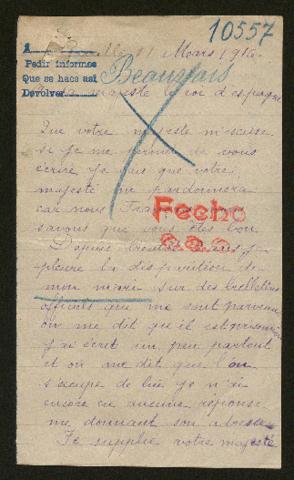 10557
Pedir informes
Que se hace así
Devolver
Beaussais
11 Mars 1916
sa majesté le roi d'espagne
Que votre majesté m'excuse
si je me permet de vous
écrire je sais que votre
majesté me pardonnera
car nous
Fecho
savons que vous êtes bon
Depuis
pleure la disparition de
mon mari sur des bulletins
officiels que me sont parvenu
on me dit qu'il est prisonnier
j'ai écrit un peu partout
et on me dit que l'on
s'occupe de lui je n'ai
encore eu aucune réponse
me donnant son adresse
Je supplie votre majesté